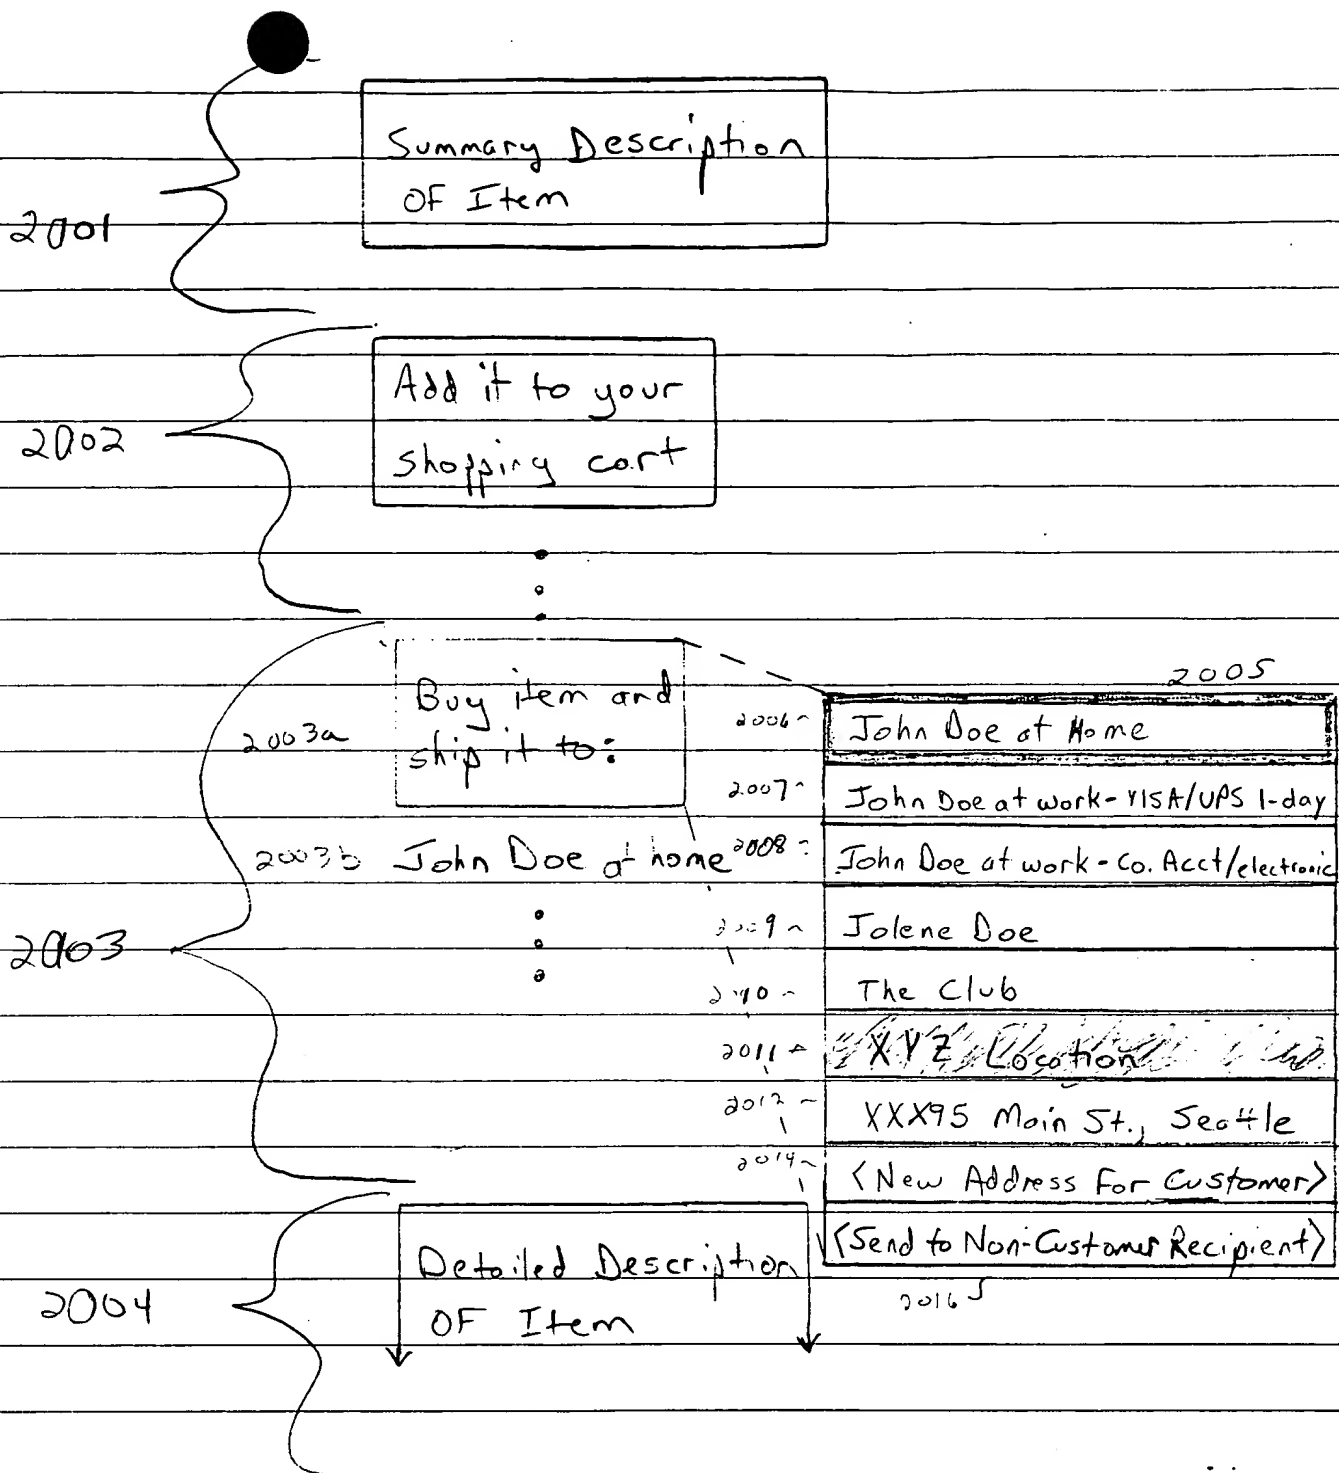 Summary Description
OF Item
2001
Add it to your
shopping cart
2002
2005
Buy item and
ship it to:
2003a
2006
John Doe at Home
2007
John Doe at work - VISA/UPS 1-day
2003b
John Doe at home
2008
John Doe at work - Co. Acct/electronic
2003
2009
Jolene Doe
2010
The Club
2011
XYZ Location
2012
XXX95 Main St., Seattle
2014
<New Address For Customer>
<Send to Non-Customer Recipient>
2016
2004
Detailed Description
OF Item